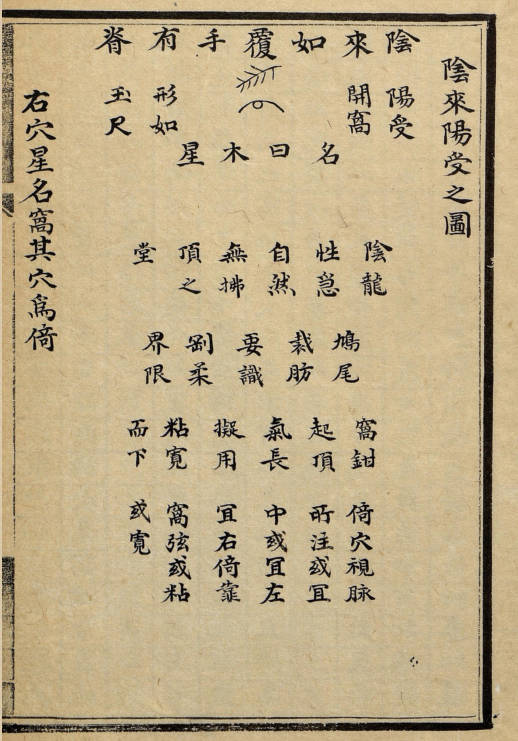 陰來陽受之圖
陰來如覆手有脊
陽受開窩
形如玉尺
名曰木星
陰龍性急自然無拂頂之堂
鳩尾裁肪要識剛柔界限
窩鉗起頂氣長擬用粘寬而下
倚穴視脉所注或冝中或冝左冝右倚靠窩弦或粘或寬
右穴星名窩其穴爲倚